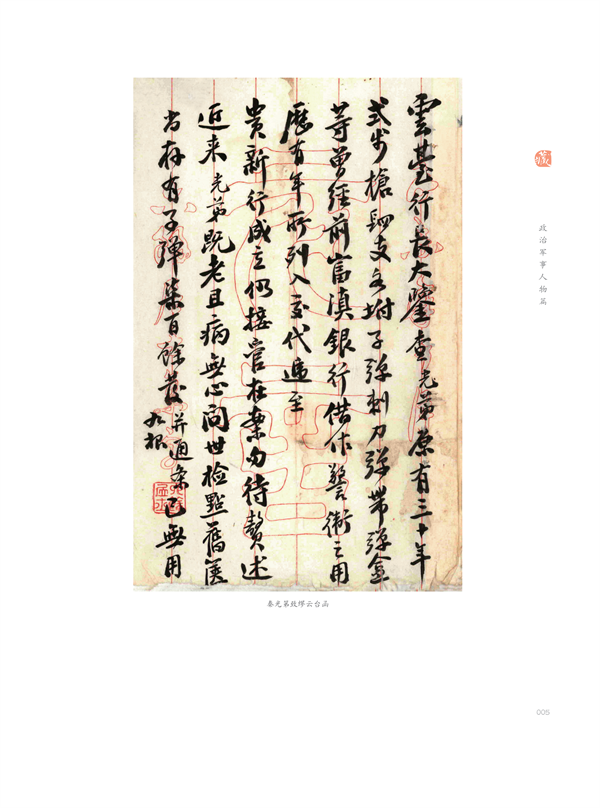 雲臺行長大鑒查光弟原有三十年
式步槍四支各坿子彈刺刀彈帶彈盒
等曾經前富滇銀行借作警衛之用
歷有年所列入交代遞至
貴新行成立仍接管在案勿待贅述
近来光弟既老且病無心問世檢點舊篋
尚存有子弹柒百餘發并通条九根已無用
政治军事人物篇
秦光第致缪云台函
005